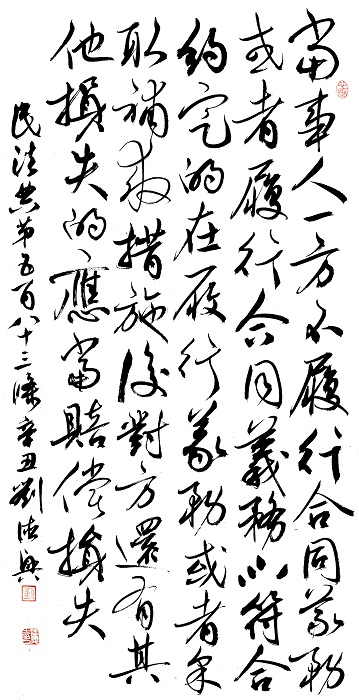 當事人一方不履行合同義務
或者履行合同義務不符合
約定的在履行義務或者采
取補救措施後對方還有其
他損失的應當賠償損失
民法典第五百八十三條辛丑劉